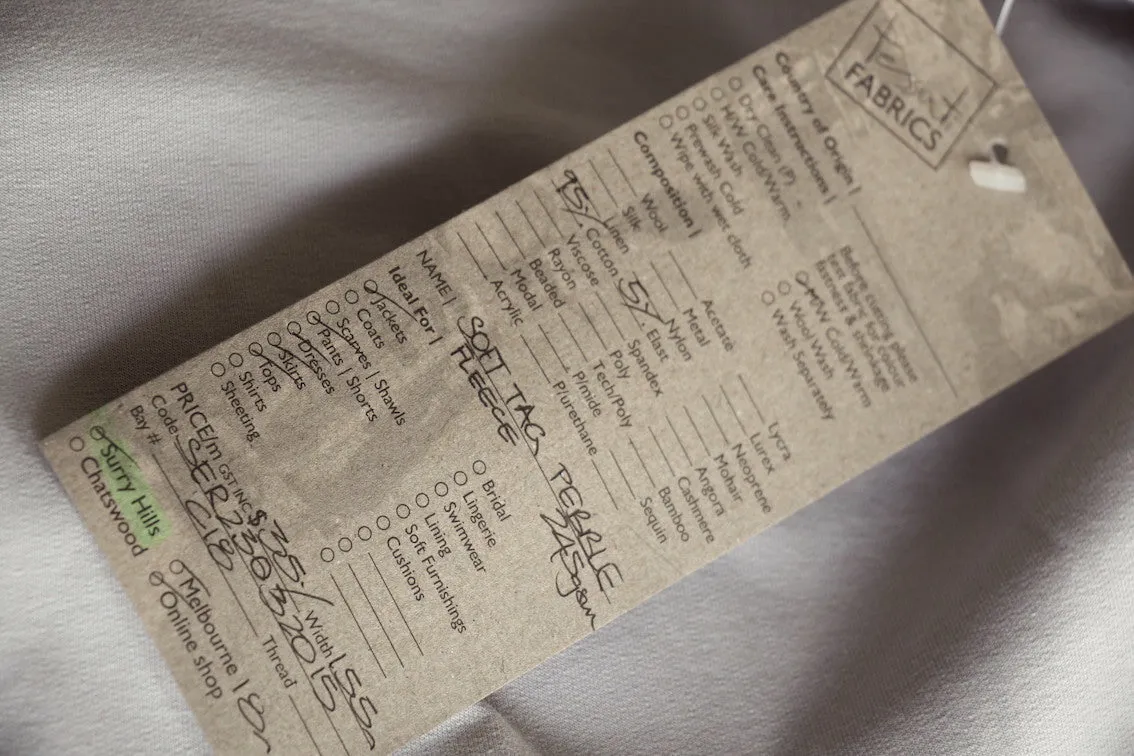 Tessuti
FABRICS
Country of Origin |
Care Instructions |
Dry Clean (P)
H/W Cold/Warm
Silk Wash
Prewash Cold
Wipe with wet cloth
Before cutting please
test fabric for colour
fastness & shrinkage
M/W Cold/Warm
Wool Wash
Wash Separately
Composition |
Wool
Silk
Linen
95% Cotton
Viscose
Rayon
Beaded
Modal
Acrylic
Acetate
Metal
Nylon
5% Elast
Spandex
Poly
Tech/Poly
P/mide
P/urethane
Lycra
Lurex
Neoprene
Mohair
Angora
Cashmere
Bamboo
Sequin
NAME | SOFT TAG PEBBLE
FLEECE 245gsm
Ideal For |
Jackets
Coats
Scarves | Shawls
Pants | Shorts
Dresses
Skirts
Tops
Shirts
Sheeting
Bridal
Lingerie
Swimwear
Lining
Soft Furnishings
Cushions
PRICE/m GST INC $ 35/ Width 155
Code SER23032015
Bay # C18 Thread
Surry Hills
Chatswood
Melbourne | 8
Online shop